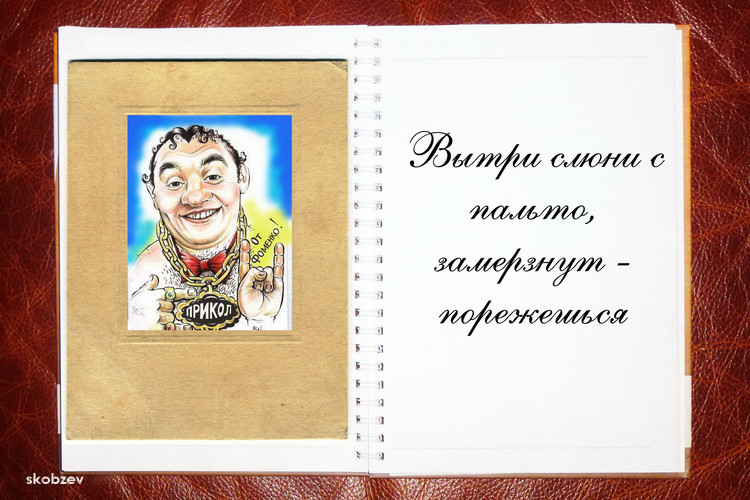 От
Фоменко!
ПРИКОЛ
Вытри слюни с
пальто,
замерзнут -
порежешься
skobzev